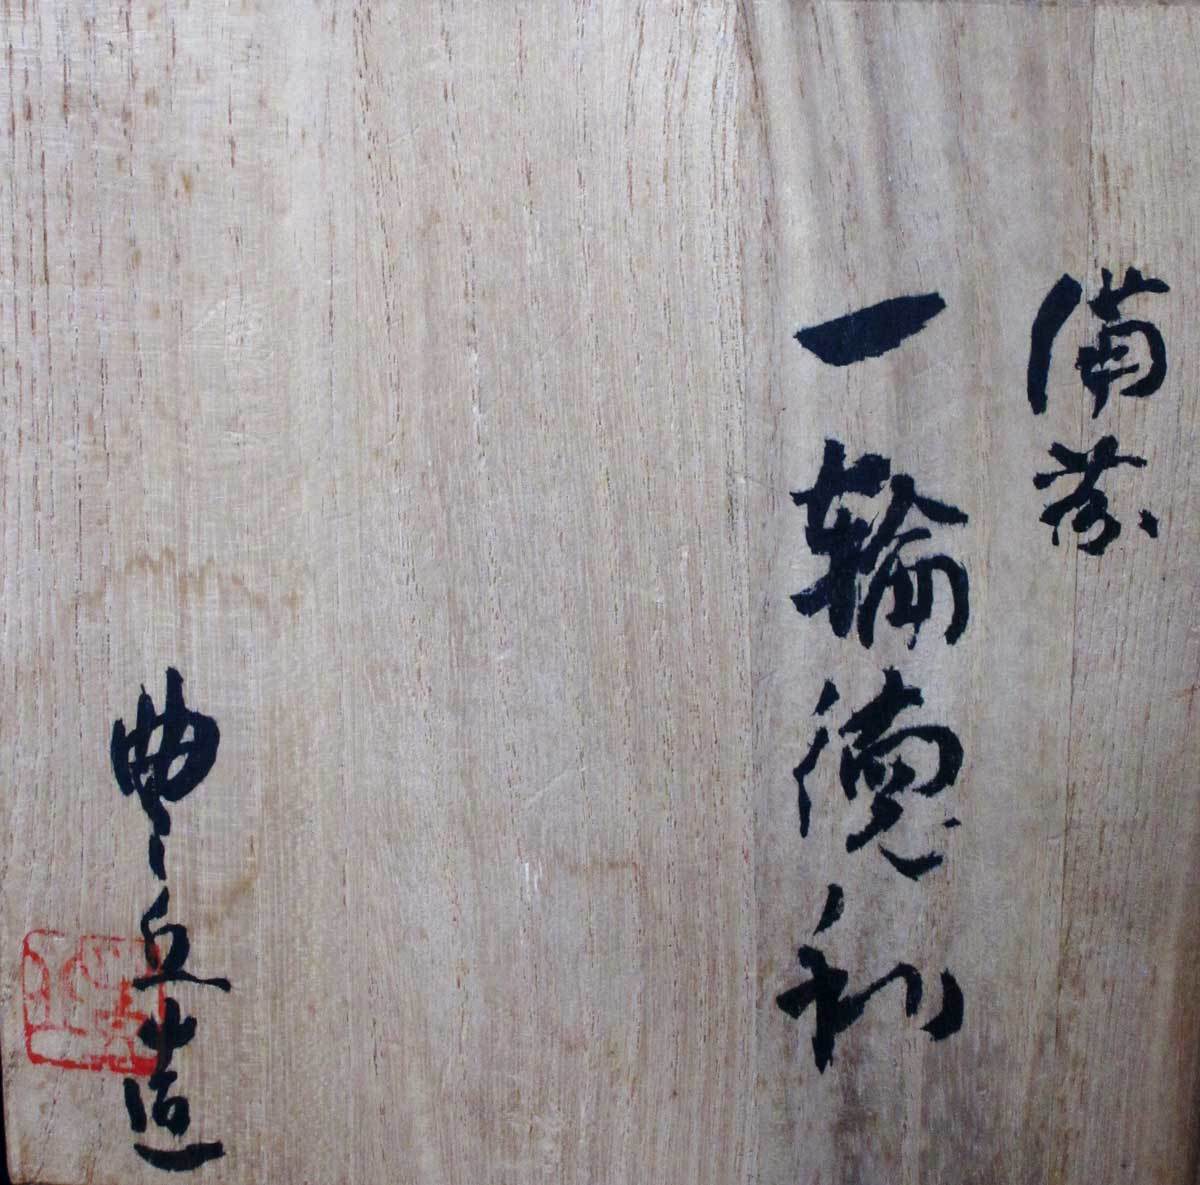 備前
一輪徳利
豊丘造